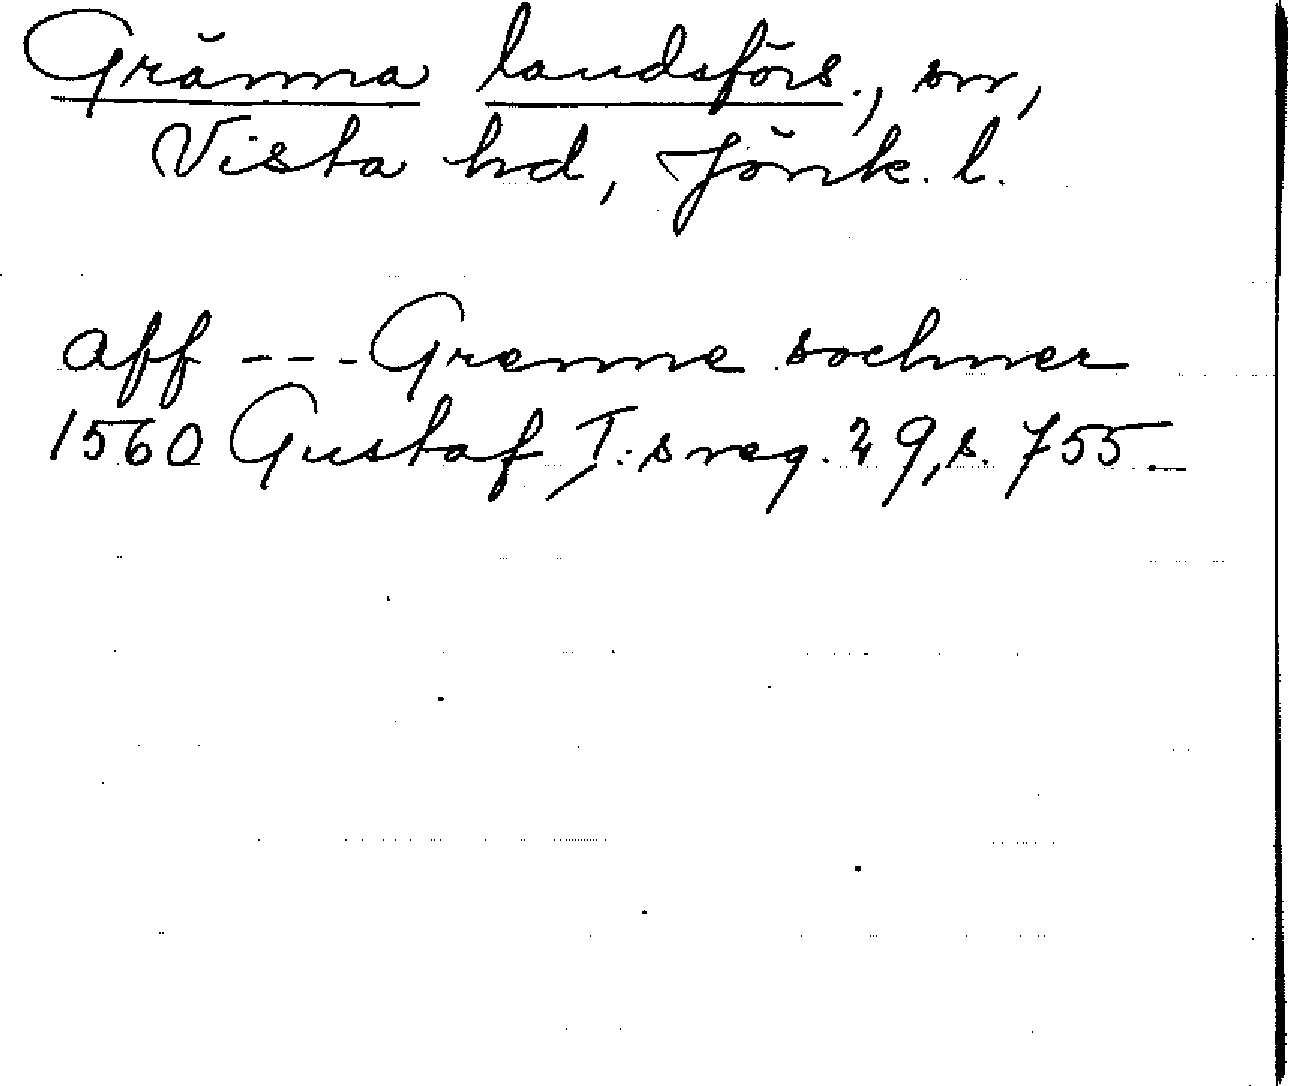 Gränna landsförs., sn,
Vista hd, Jönk. l.
aff --- Grenne sochner
1560 Gustaf I:s reg. 29, s. 755.